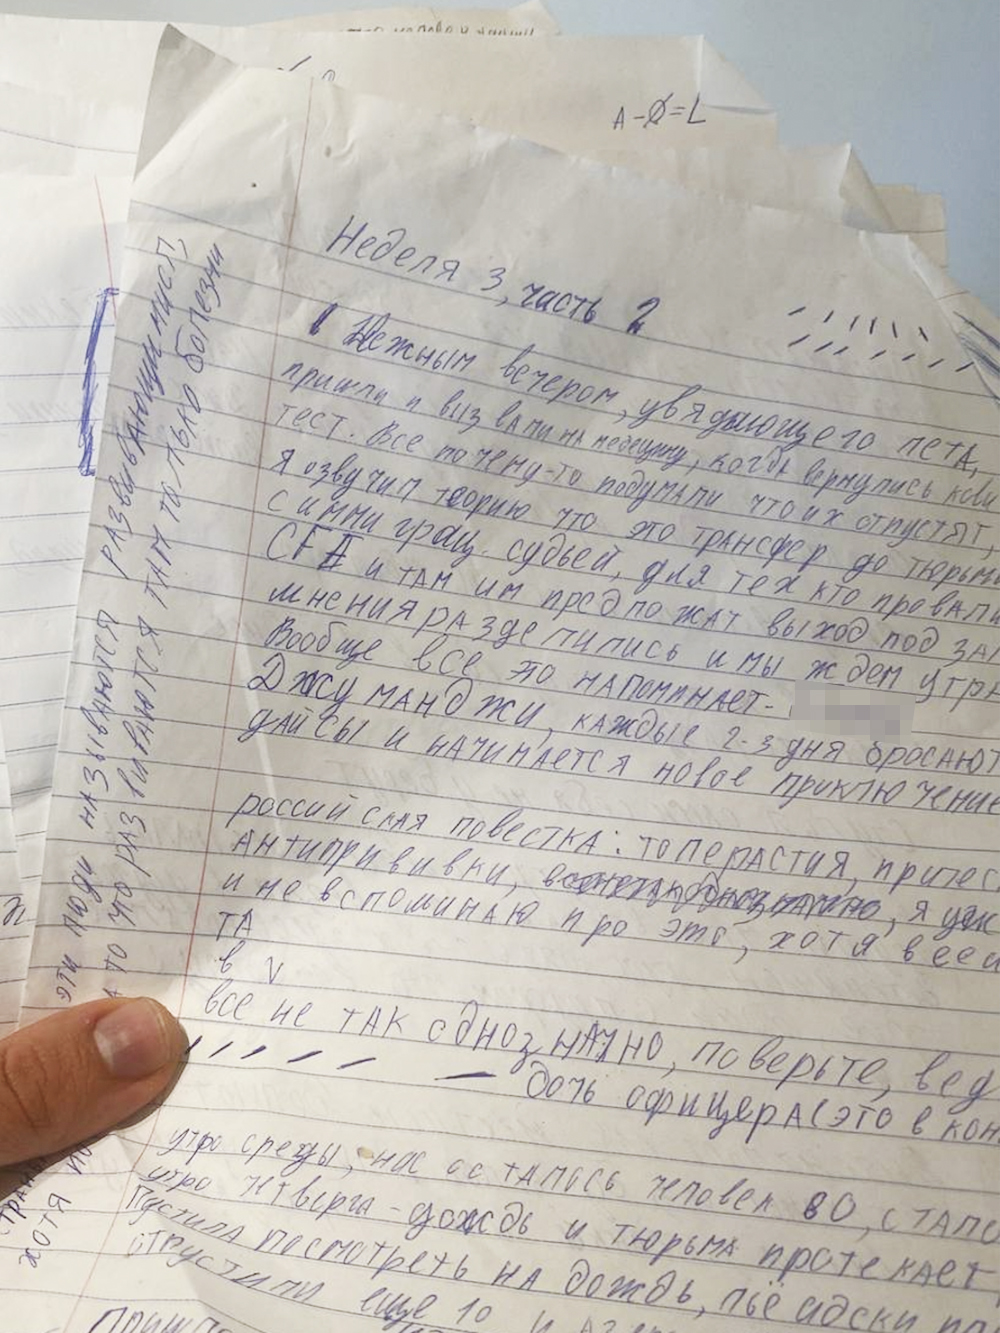 А-Ø=L
Неделя 3, часть 2
Нежным вечером, увядающего лета,
пришли и вызвали на медецину, когда вернулись кови
тест. Все почему-то подумали что их отпустят,
я озвучил теорию что это трансфер до тюрьм
с иммиграц. судьей, для тех кто провали
CFI и там им предложат выход под зал
мнения разделились и мы ждем утра
Вообще все это напоминает-
Джуманджи, каждые 2-3 дня бросают
дайсы и начинается новое приключение
российская повестка: толерастия, притес
Антипрививки, я уж
и не вспоминаю про это, хотя
ТА
в V
все не так однозначно, поверьте, вед
дочь офицера (это в кон
утро среды, нас осталось человек 80, стало
утро четверга - дождь и тюрьма протекает
Пустили посмотреть на дождь, льё адски
отпустили еще 10 и
эти люди называются развивающимися,
а то что развивается там только болезни
страны
хотя